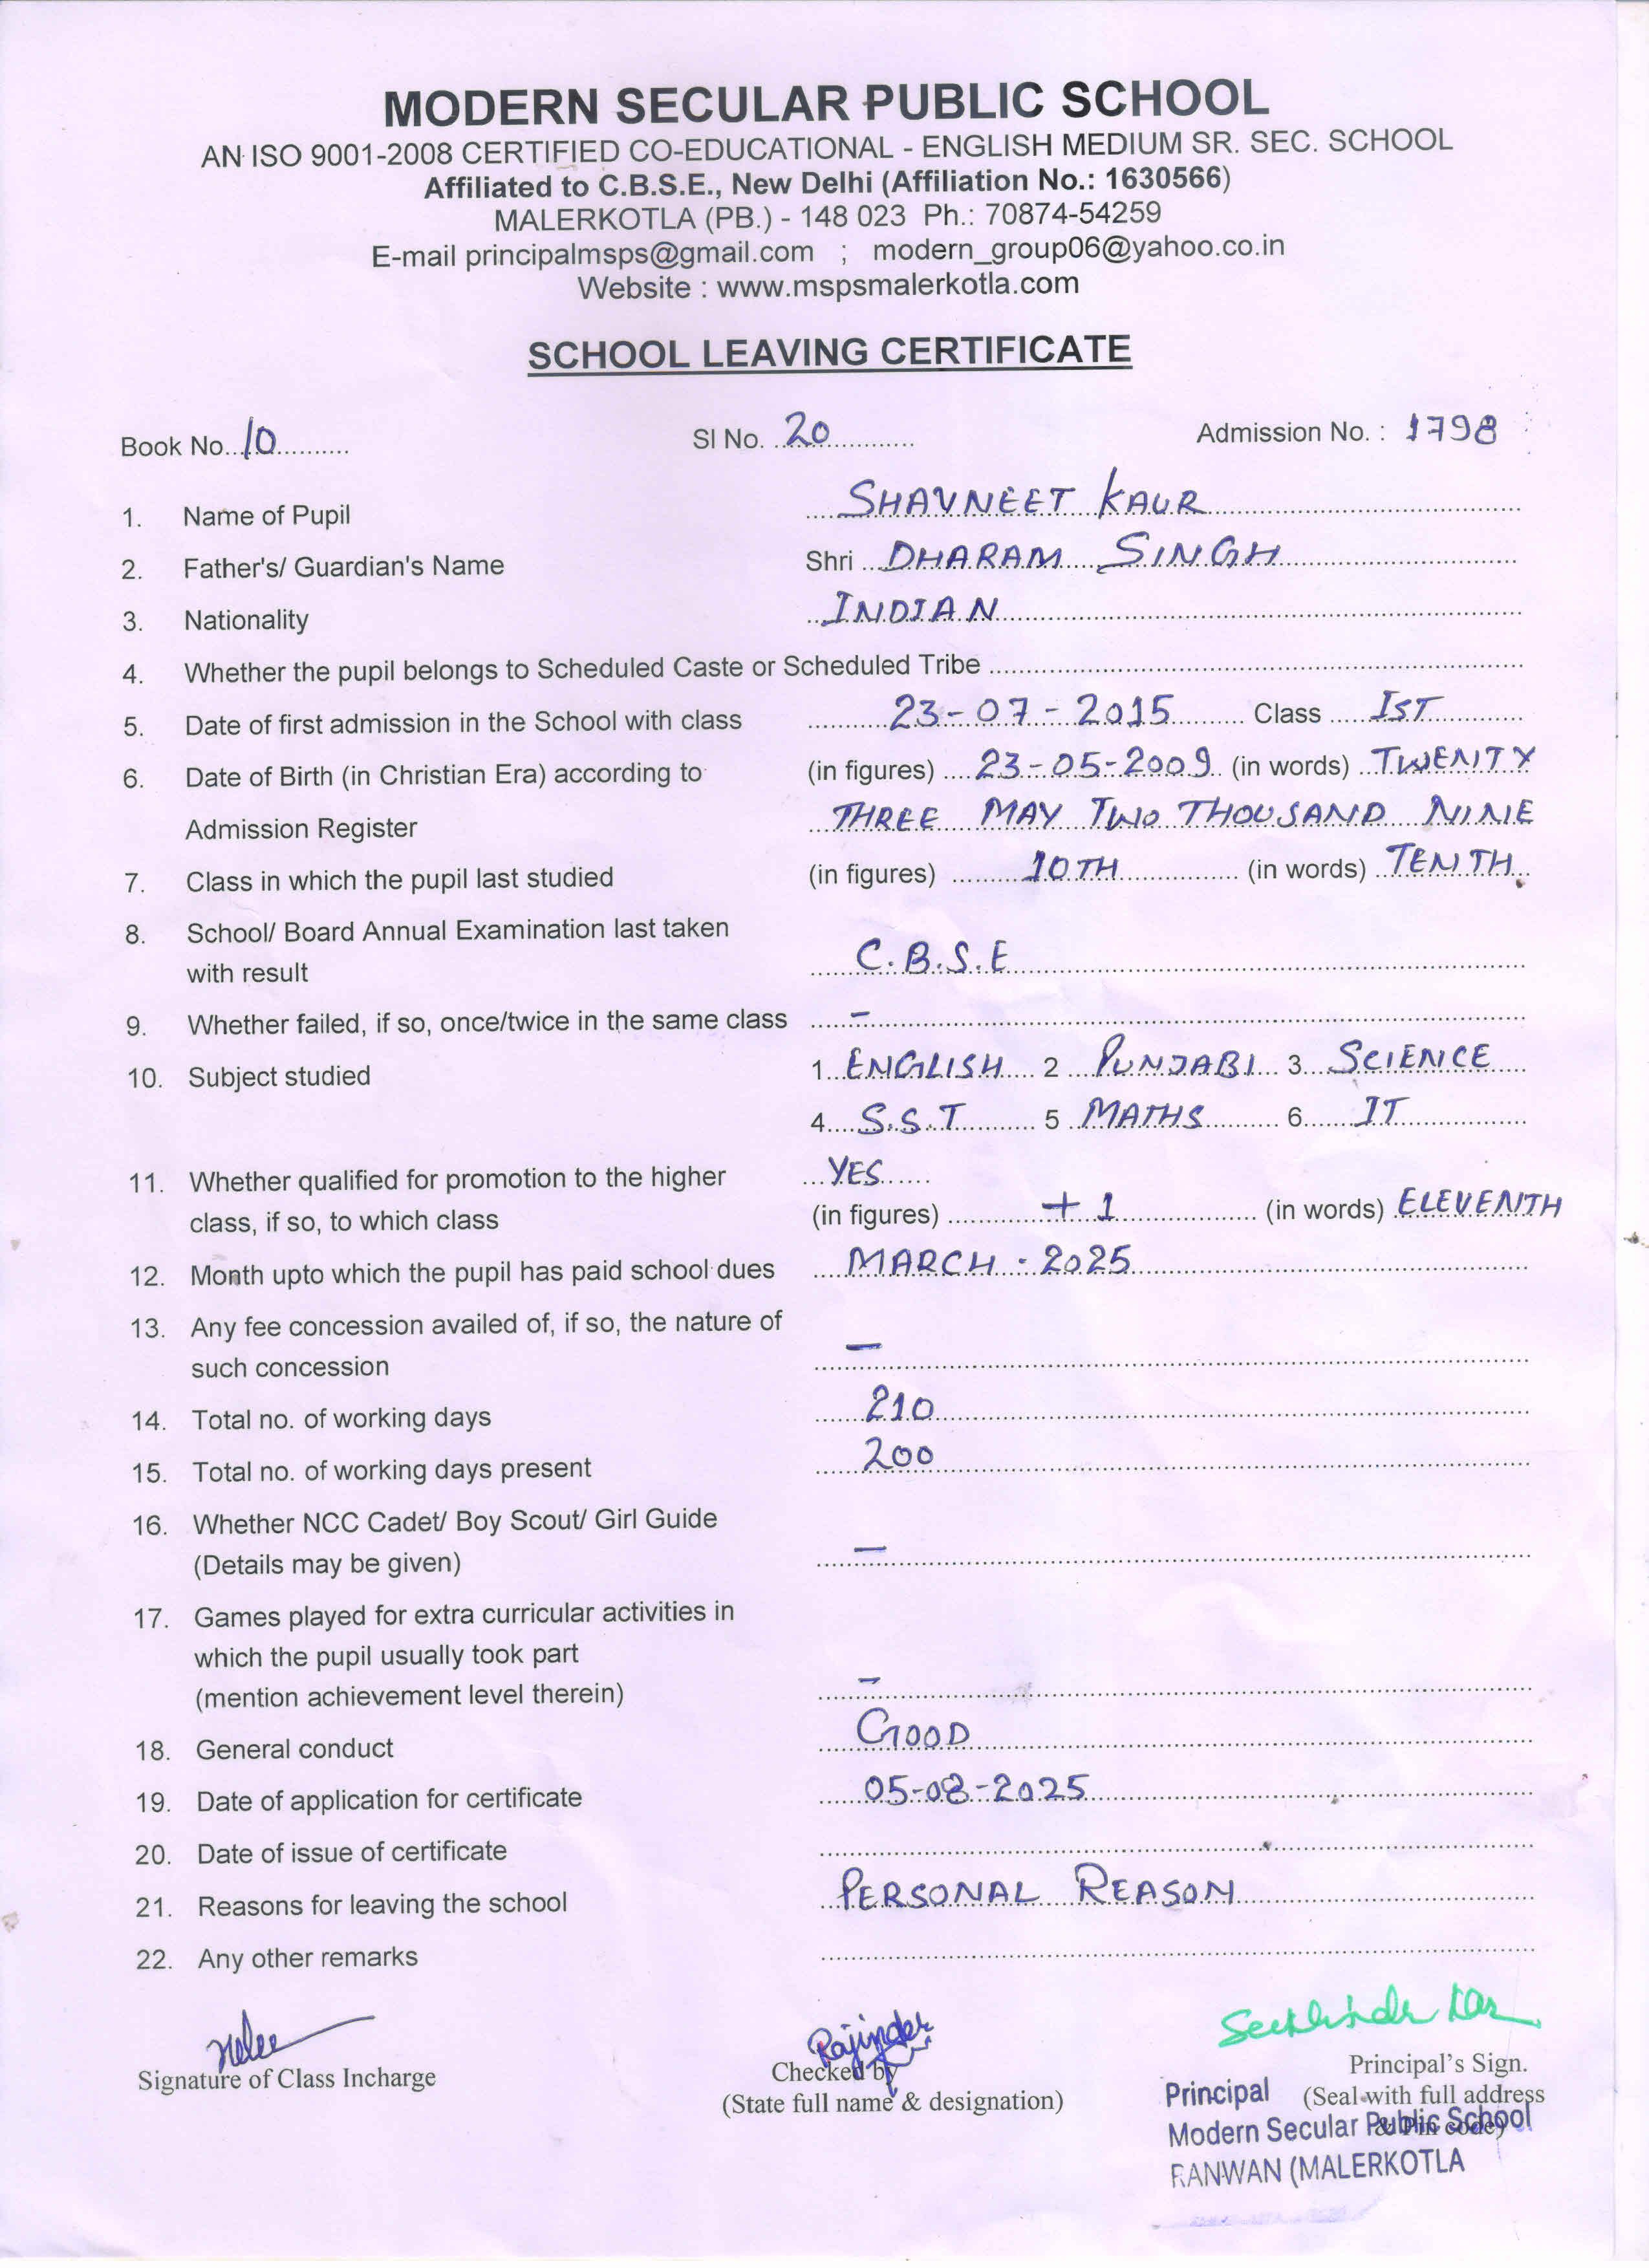 MODERN SECULAR PUBLIC SCHOOL
AN ISO 9001-2008 CERTIFIED CO-EDUCATIONAL - ENGLISH MEDIUM SR. SEC. SCHOOL
Affiliated to C.B.S.E., New Delhi (Affiliation No.: 1630566)
MALERKOTLA (PB.) - 148 023 Ph.: 70874-54259
E-mail principalmsps@gmail.com ; modern_group06@yahoo.co.in
Website : www.mspsmalerkotla.com
SCHOOL LEAVING CERTIFICATE
Book No. 10 Sl No. 20 Admission No. : 1798
1. Name of Pupil SHAVNEET KAUR
2. Father's/ Guardian's Name Shri DHARAM SINGH
3. Nationality INDIAN
4. Whether the pupil belongs to Scheduled Caste or Scheduled Tribe
5. Date of first admission in the School with class 23-07-2015 Class IST
6. Date of Birth (in Christian Era) according to (in figures) 23-05-2009 (in words) TWENTY
Admission Register THREE MAY TWO THOUSAND NINE
7. Class in which the pupil last studied (in figures) 10TH (in words) TENTH
8. School/ Board Annual Examination last taken
with result C.B.S.E
9. Whether failed, if so, once/twice in the same class -
10. Subject studied 1 ENGLISH 2 PUNJABI 3 SCIENCE
4 S.S.T 5 MATHS 6 IT
11. Whether qualified for promotion to the higher YES
class, if so, to which class (in figures) +1 (in words) ELEVENTH
12. Month upto which the pupil has paid school dues MARCH - 2025
13. Any fee concession availed of, if so, the nature of
such concession -
14. Total no. of working days 210
15. Total no. of working days present 200
16. Whether NCC Cadet/ Boy Scout/ Girl Guide
(Details may be given) -
17. Games played for extra curricular activities in
which the pupil usually took part
(mention achievement level therein) -
18. General conduct GOOD
19. Date of application for certificate 05-08-2025
20. Date of issue of certificate
21. Reasons for leaving the school PERSONAL REASON
22. Any other remarks
Rajinder
Signature of Class Incharge Checked by Principal's Sign.
(State full name & designation) (Seal with full address
& Pin code)
Principal
Modern Secular Public School
RANWAN (MALERKOTLA